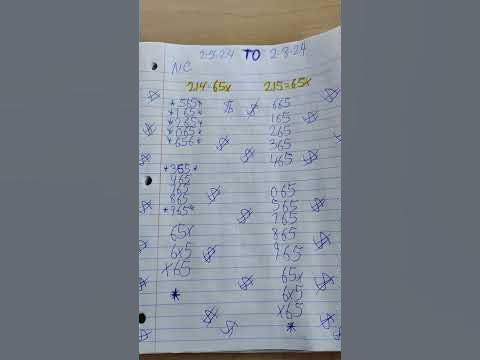 2-2-24 TO 2-8-24
NC
214=65x 215=65x
*565* 665
*165* 165
*265* 265
*065* 365
*656* 465
*365*
465 065
765 565
865 765
*965* 865
65x 965
6x5 65x
x65 6x5
* x65
*